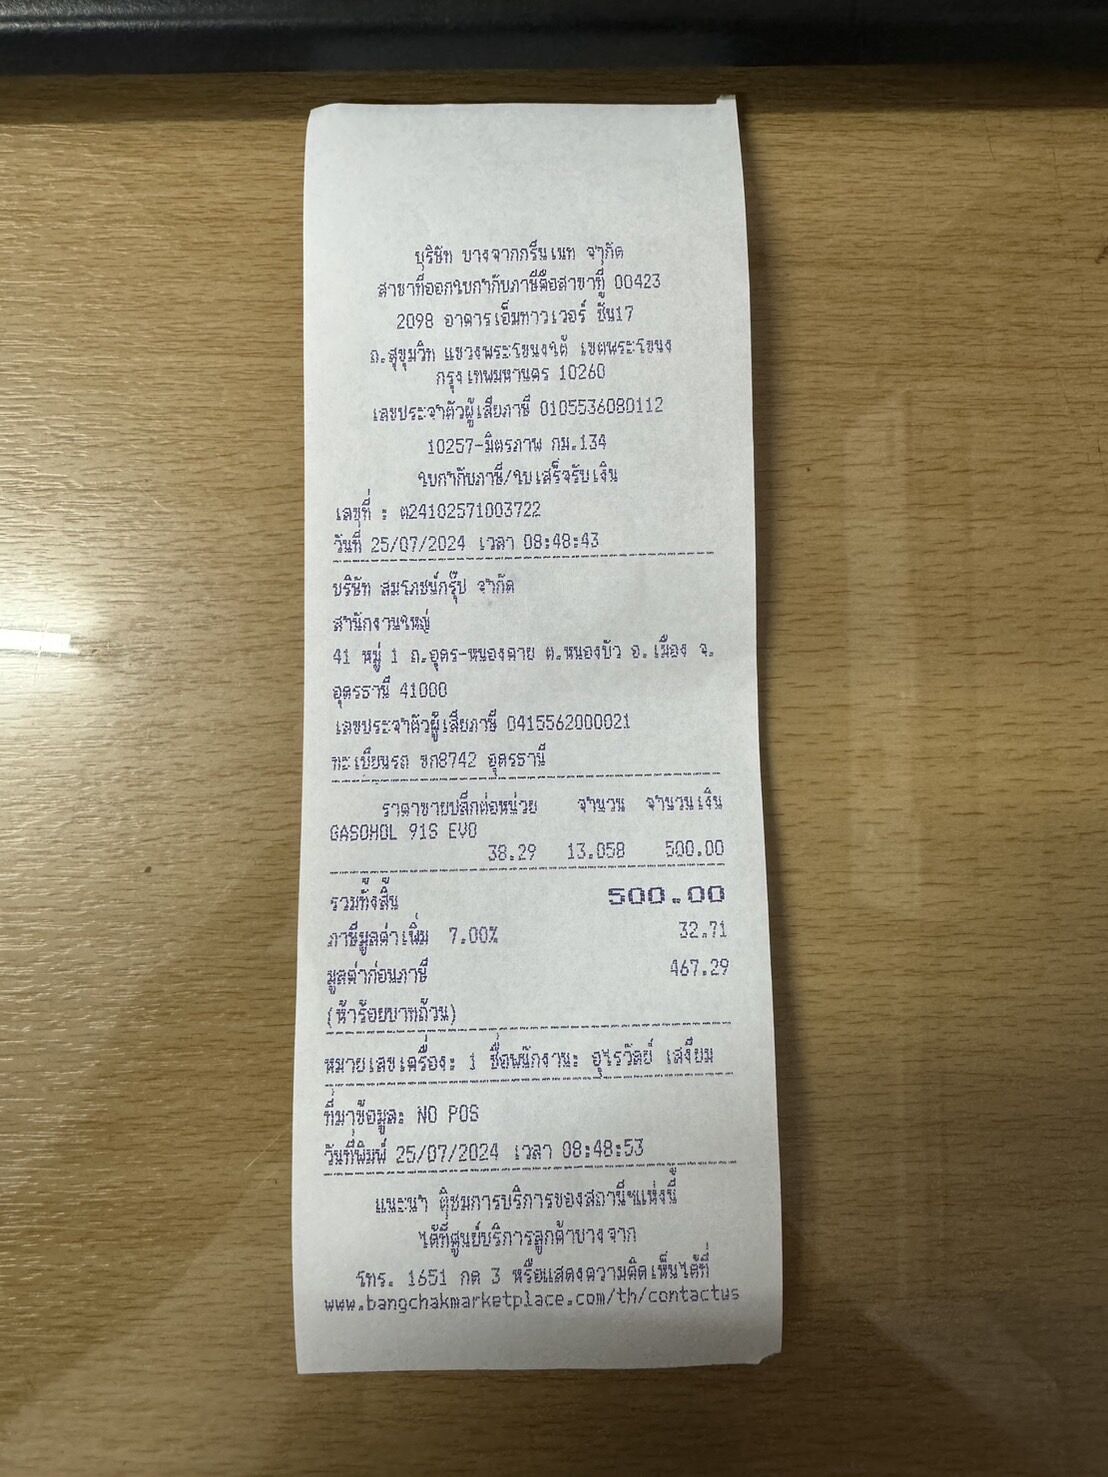 บริษัท บางจากกรีนเนท จำกัด
สาขาที่ออกใบกำกับภาษีคือสาขาที่ 00423
2098 อาคารเอ็มทาวเวอร์ ชั้น17
ถ.สุขุมวิท แขวงพระโขนงใต้ เขตพระโขนง
กรุงเทพมหานคร 10260
เลขประจำตัวผู้เสียภาษี 0105536080112
10257-มิตรภาพ กม.134
ใบกำกับภาษี/ใบเสร็จรับเงิน
เลขที่ : ต24102571003722
วันที่ 25/07/2024 เวลา 08:48:43
บริษัท สมโภชน์กรุ๊ป จำกัด
สำนักงานใหญ่
41 หมู่ 1 ถ.อุดร-หนองคาย ต.หนองบัว อ.เมือง จ.
อุดรธานี 41000
เลขประจำตัวผู้เสียภาษี 0415562000021
ทะเบียนรถ ขก8742 อุดรธานี
ราคาขายปลีกต่อหน่วย จำนวน จำนวนเงิน
GASOHOL 91S EVO
38.29 13.058 500.00
รวมทั้งสิ้น 500.00
ภาษีมูลค่าเพิ่ม 7.00% 32.71
มูลค่าก่อนภาษี 467.29
(ห้าร้อยบาทถ้วน)
หมายเลขเครื่อง: 1 ชื่อพนักงาน: อุไรวัลย์ เสงี่ยม
ที่มาข้อมูล: NO POS
วันที่พิมพ์ 25/07/2024 เวลา 08:48:53
แนะนำ ติชมการบริการของสถานีฯแห่งนี้
ได้ที่ศูนย์บริการลูกค้าบางจาก
โทร. 1651 กด 3 หรือแสดงความคิดเห็นได้ที่
www.bangchakmarketplace.com/th/contactus